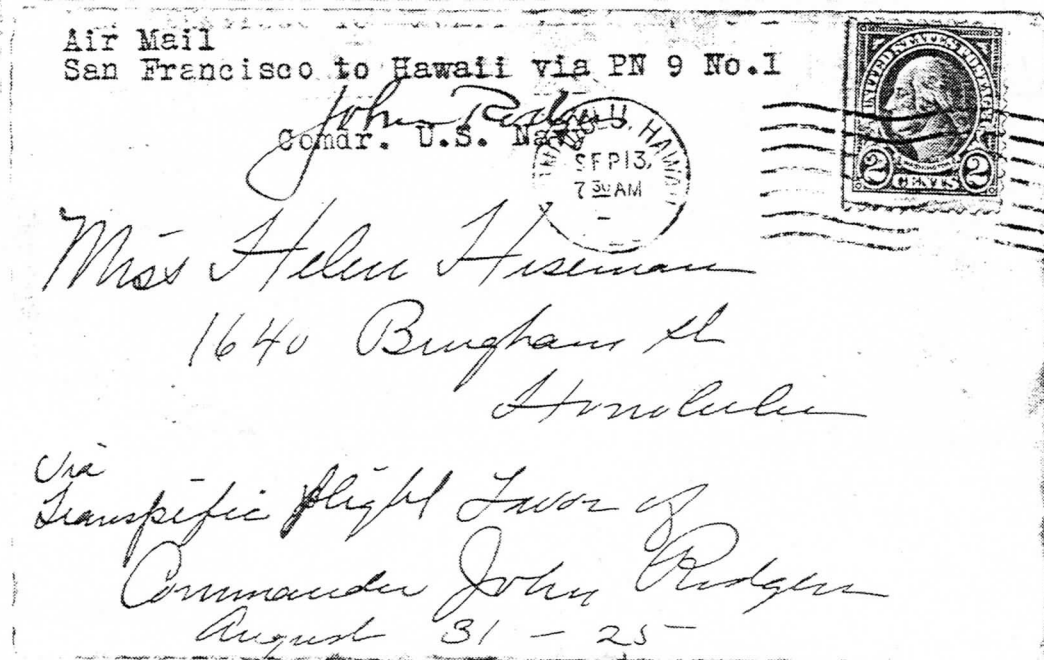 Air Mail
San Francisco to Hawaii via PN 9 No.1
John Rodgers
Comdr. U.S. Navy
HONOLULU, HAWAII
SEP 13,
7 30 AM
UNITED STATES POSTAGE
2 CENTS 2
Miss Helen Hiseman
1640 Bingham St
Honolulu
Via
Transpific flight Favor of
Commander John Rodgers
August 31 - 25